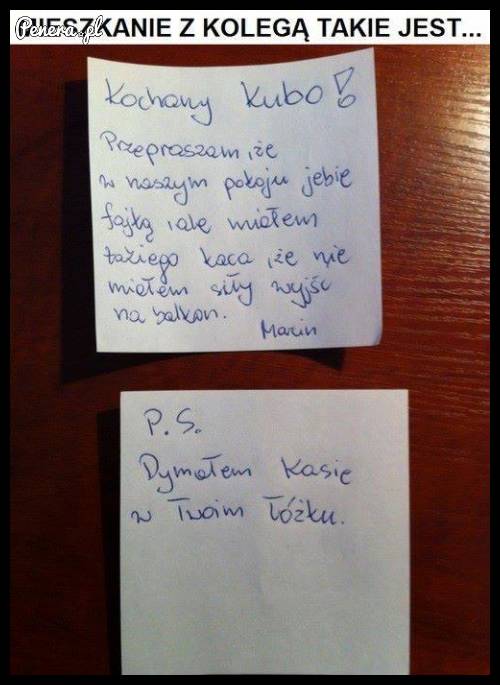 MIESZKANIE Z KOLEGĄ TAKIE JEST...
Penera.pl
Kochany Kubo!
Przepraszam, że
w naszym pokoju jebie
fajką, ale miałem
takiego kaca, że nie
miałem siły wyjść
na balkon.
Marcin
P.S.
Dymałem Kasię
w Twoim łóżku.